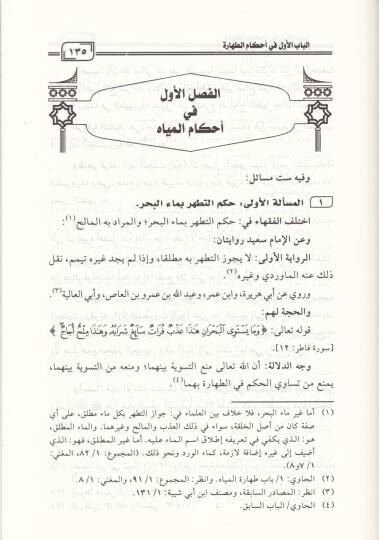 الباب الأول في أحكام الطهارة
١٣٥
الفصل الأول
في
أحكام المياه
وفيه ست مسائل:
١ المسألة الأولى: حكم التطهر بماء البحر.
اختلف الفقهاء في: حكم التطهر بماء البحر؛ والمراد به المالح(١).
وعن الإمام سعيد روايتان:
الرواية الأولى: لا يجوز التطهر به مطلقا، وإذا لم يجد غيره تيمم، نقل
ذلك عنه الماوردي وغيره(٢).
وروي عن أبي هريرة، وابن عمر، وعبد الله بن عمرو بن العاص، وأبي العالية(٣).
والحجة لهم:
قوله تعالى: ﴿وَمَا يَسْتَوِى ٱلْبَحْرَانِ هَٰذَا عَذْبٌ فُرَاتٌ سَآئِغٌ شَرَابُهُۥ وَهَٰذَا مِلْحٌ أُجَاجٌ ﴾
[سورة فاطر: ١٢].
وجه الدلالة: أن الله تعالى منع التسوية بينهما؛ ومنعه عن التسوية بينهما،
يمنع من تساوي الحكم في الطهارة بهما(٤).
(١) أما غير ماء البحر، فلا خلاف بين العلماء في: جواز التطهر بكل ماء مطلق، على أي
صفة كان من أصل الخلقة، سواء في ذلك العذب والمالح وغيرهما. والماء المطلق،
هو: الذي يكفي في تعريفه إطلاق اسم الماء عليه. أما غير المطلق، فهو: الذي
أضيف إلى غيره إضافة لازمة، كماء الورد ونحو ذلك. (المجموع: ١/ ٨٢، المغني:
١/ ٧ و٨).
(٢) الحاوي: ١/ باب طهارة المياه. وانظر: المجموع: ١/ ٩١، والمغني: ١/ ٨.
(٣) انظر: المصادر السابقة، ومصنف ابن أبي شيبة: ١/ ١٣١.
(٤) الحاوي/ الباب السابق.